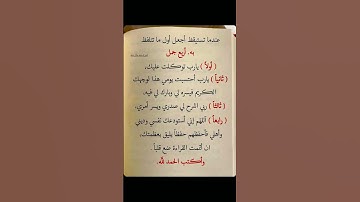 عندما تستيقظ أجعل أول ما تتلفظ
به. أربع جمل
( أولاً ) يارب توكلت عليك،
( ثانياً ) يارب أحتسبت يومي هذا لوجهك
الكريم فيسره لي وبارك لي فيه،
( ثالثاً ) ربي اشرح لي صدري ويسر أمري،
( رابعاً ) اللهم إني أستودعك نفسي وديني
وأهلي فأحفظهم حفظاً يليق بعظمتك،
ان أتممت القراءة ضع قلباً .
وأكتب الحمد لله.